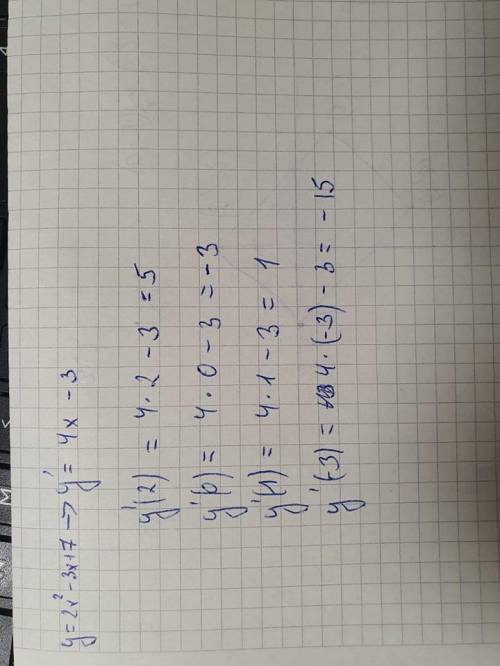 y = 2x² - 3x + 7 → y' = 4x - 3
y'(2) = 4 · 2 - 3 = 5
y'(0) = 4 · 0 - 3 = -3
y'(1) = 4 · 1 - 3 = 1
y'(-3) = 4 · (-3) - 3 = -15